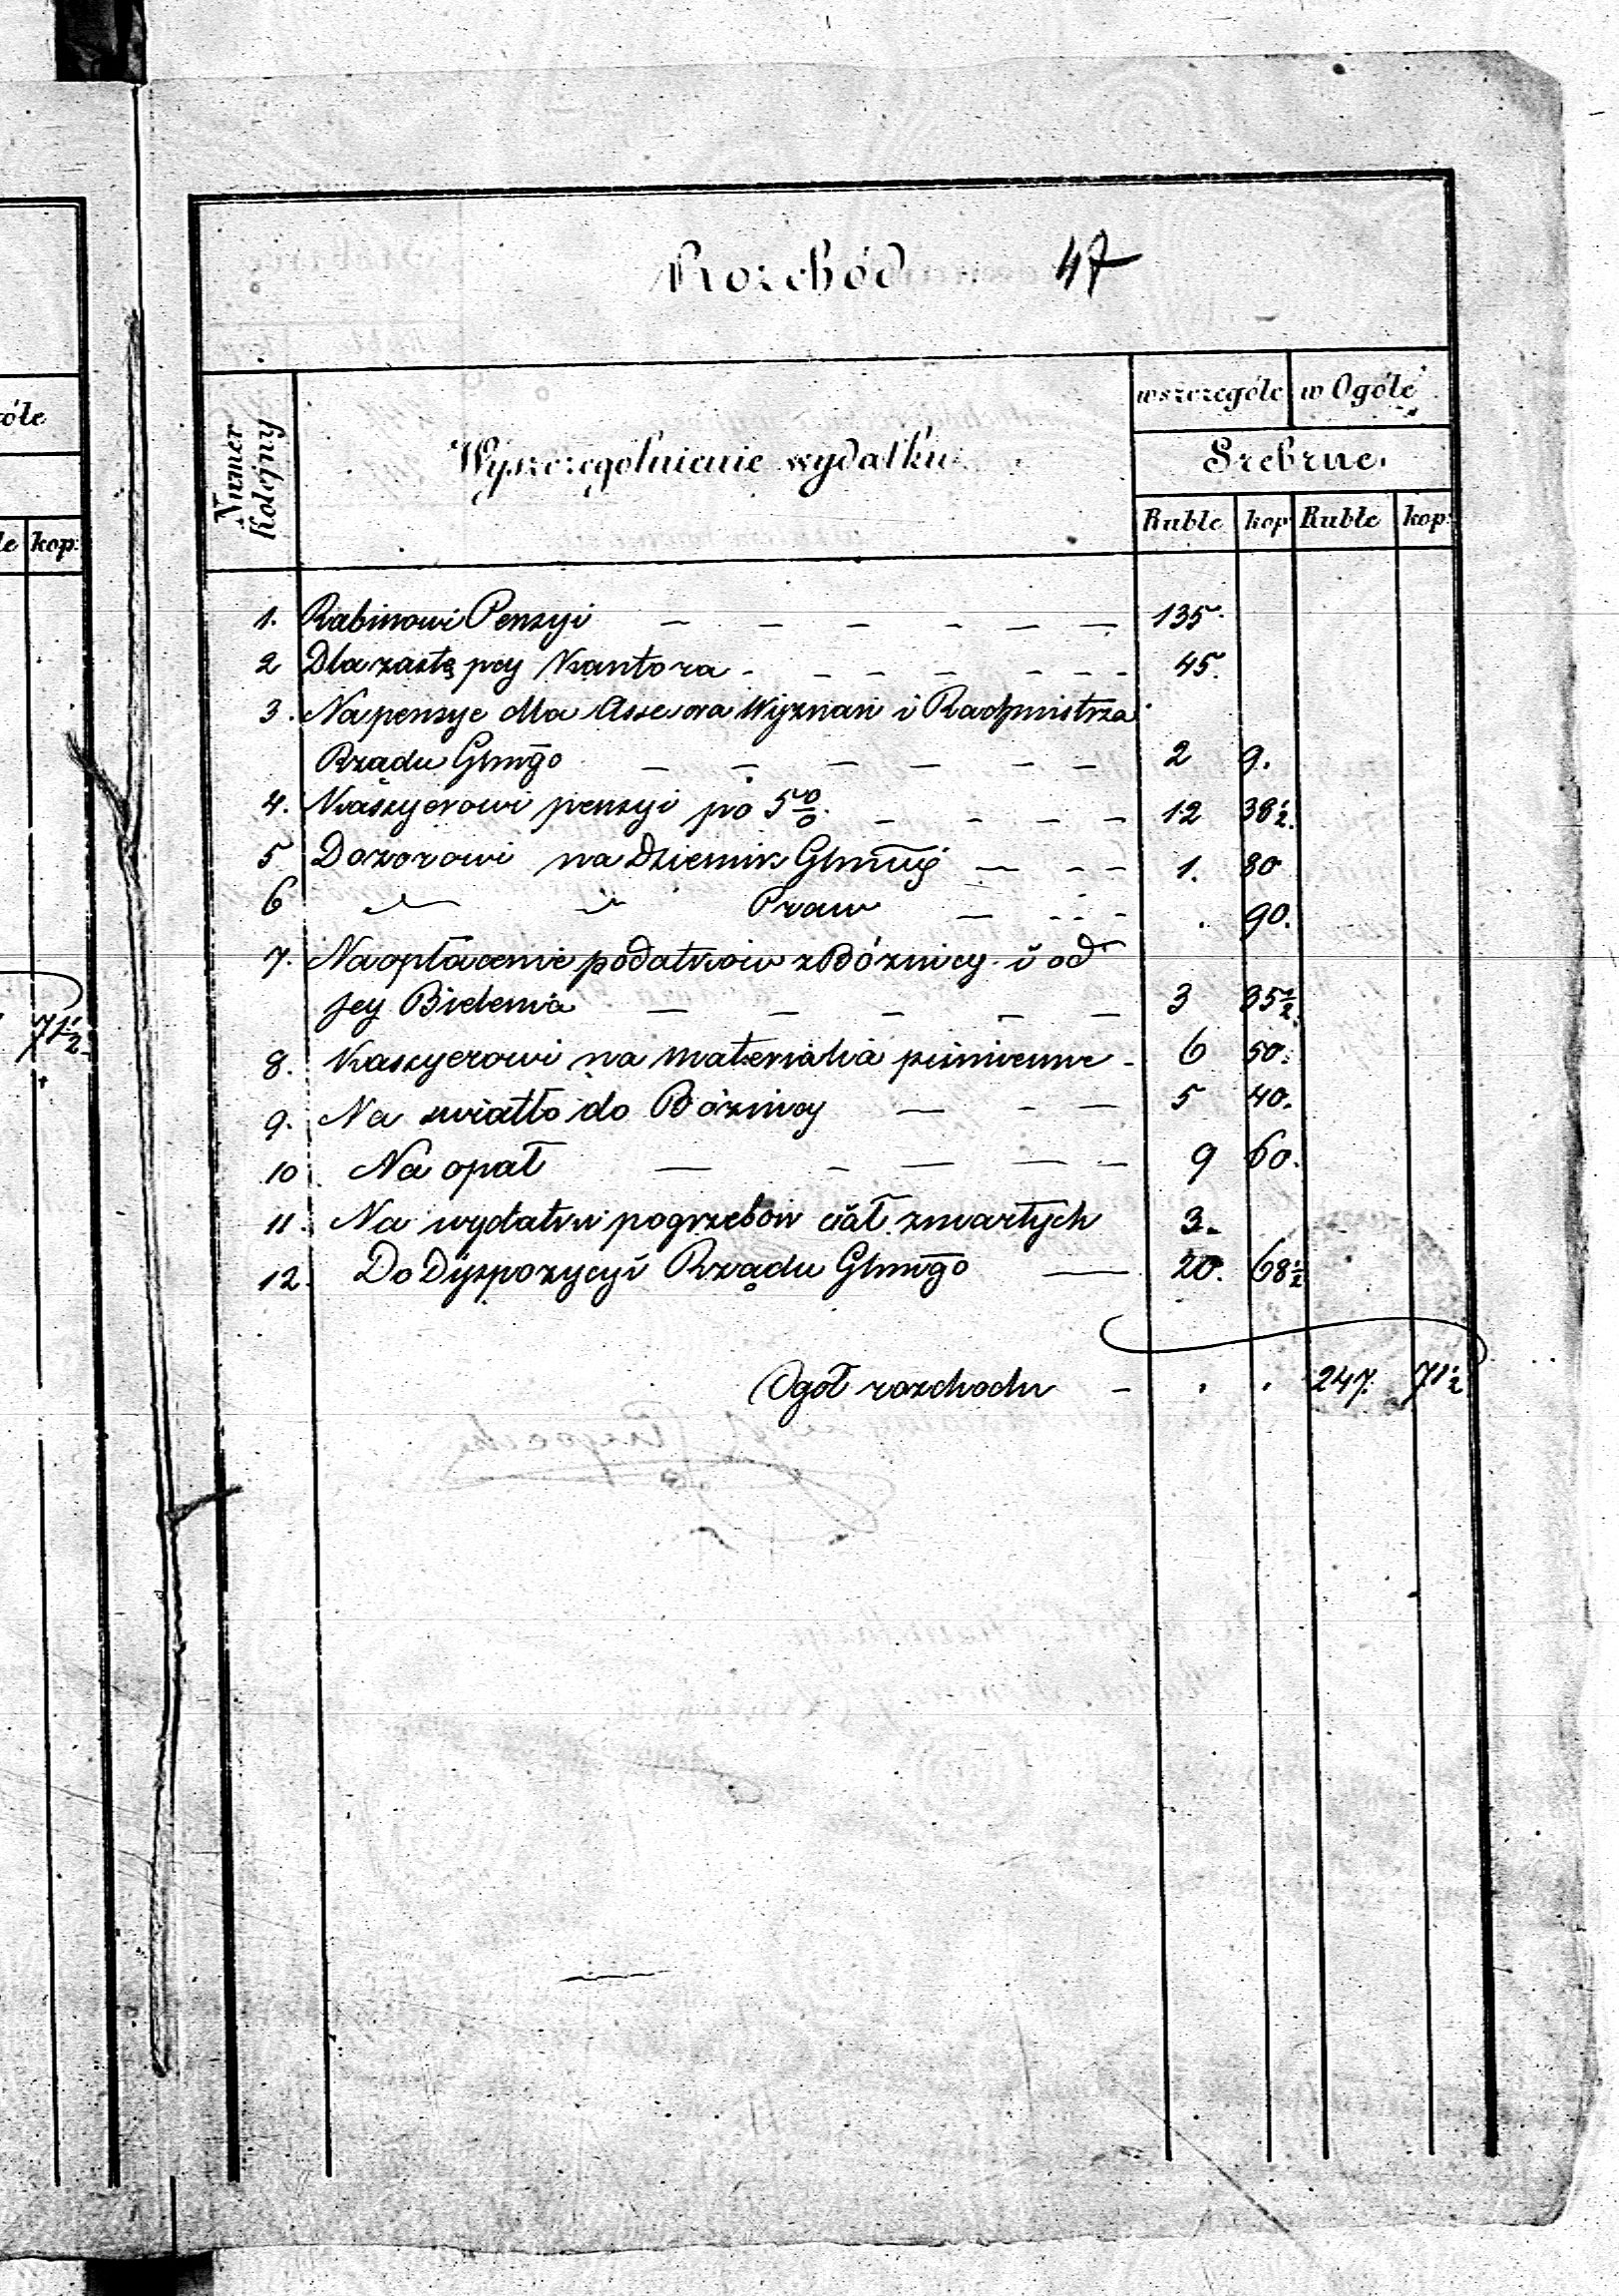 Rozchód 47
óle
Numer Kolejny
Wyszczególnienie wydatku
wszczególe w Ogóle
Srebrne
Ruble kop Ruble kop:
le kop:
1. Rabinowi Pensyi — — — — — — 135.
2 Dla zastępcy Kantora - - - - - - - 45.
3. Na pensye dla Assesora Wyznań i Rachmistrza
Rządu Gbngo — — — — — — 2 9.
4. Kassyerowi pensyi po 5 0/0. — - - - 12 38 1/2.
5 Dozorowi na Dziennik — - - 1. 80
6 Praw — - - - . 90.
7. Na opłacenie podatków z Bóżnicy i od
jey Bielenia — — — — — 3 35 1/2.
71 1/2
8. Kassyerowi na materialia piśmienne - 6 50.
9. Na swiatło do Bóżnicy — - — 5 40.
10 Na opał — - — — - 9 60.
11. Na wydatki pogrzebów ciał zmarłych 3.
12. Do Dyspozycyi Rządu Gbngo — 20. 68 1/2
Ogół rozchodu - . . 247. 71 1/2